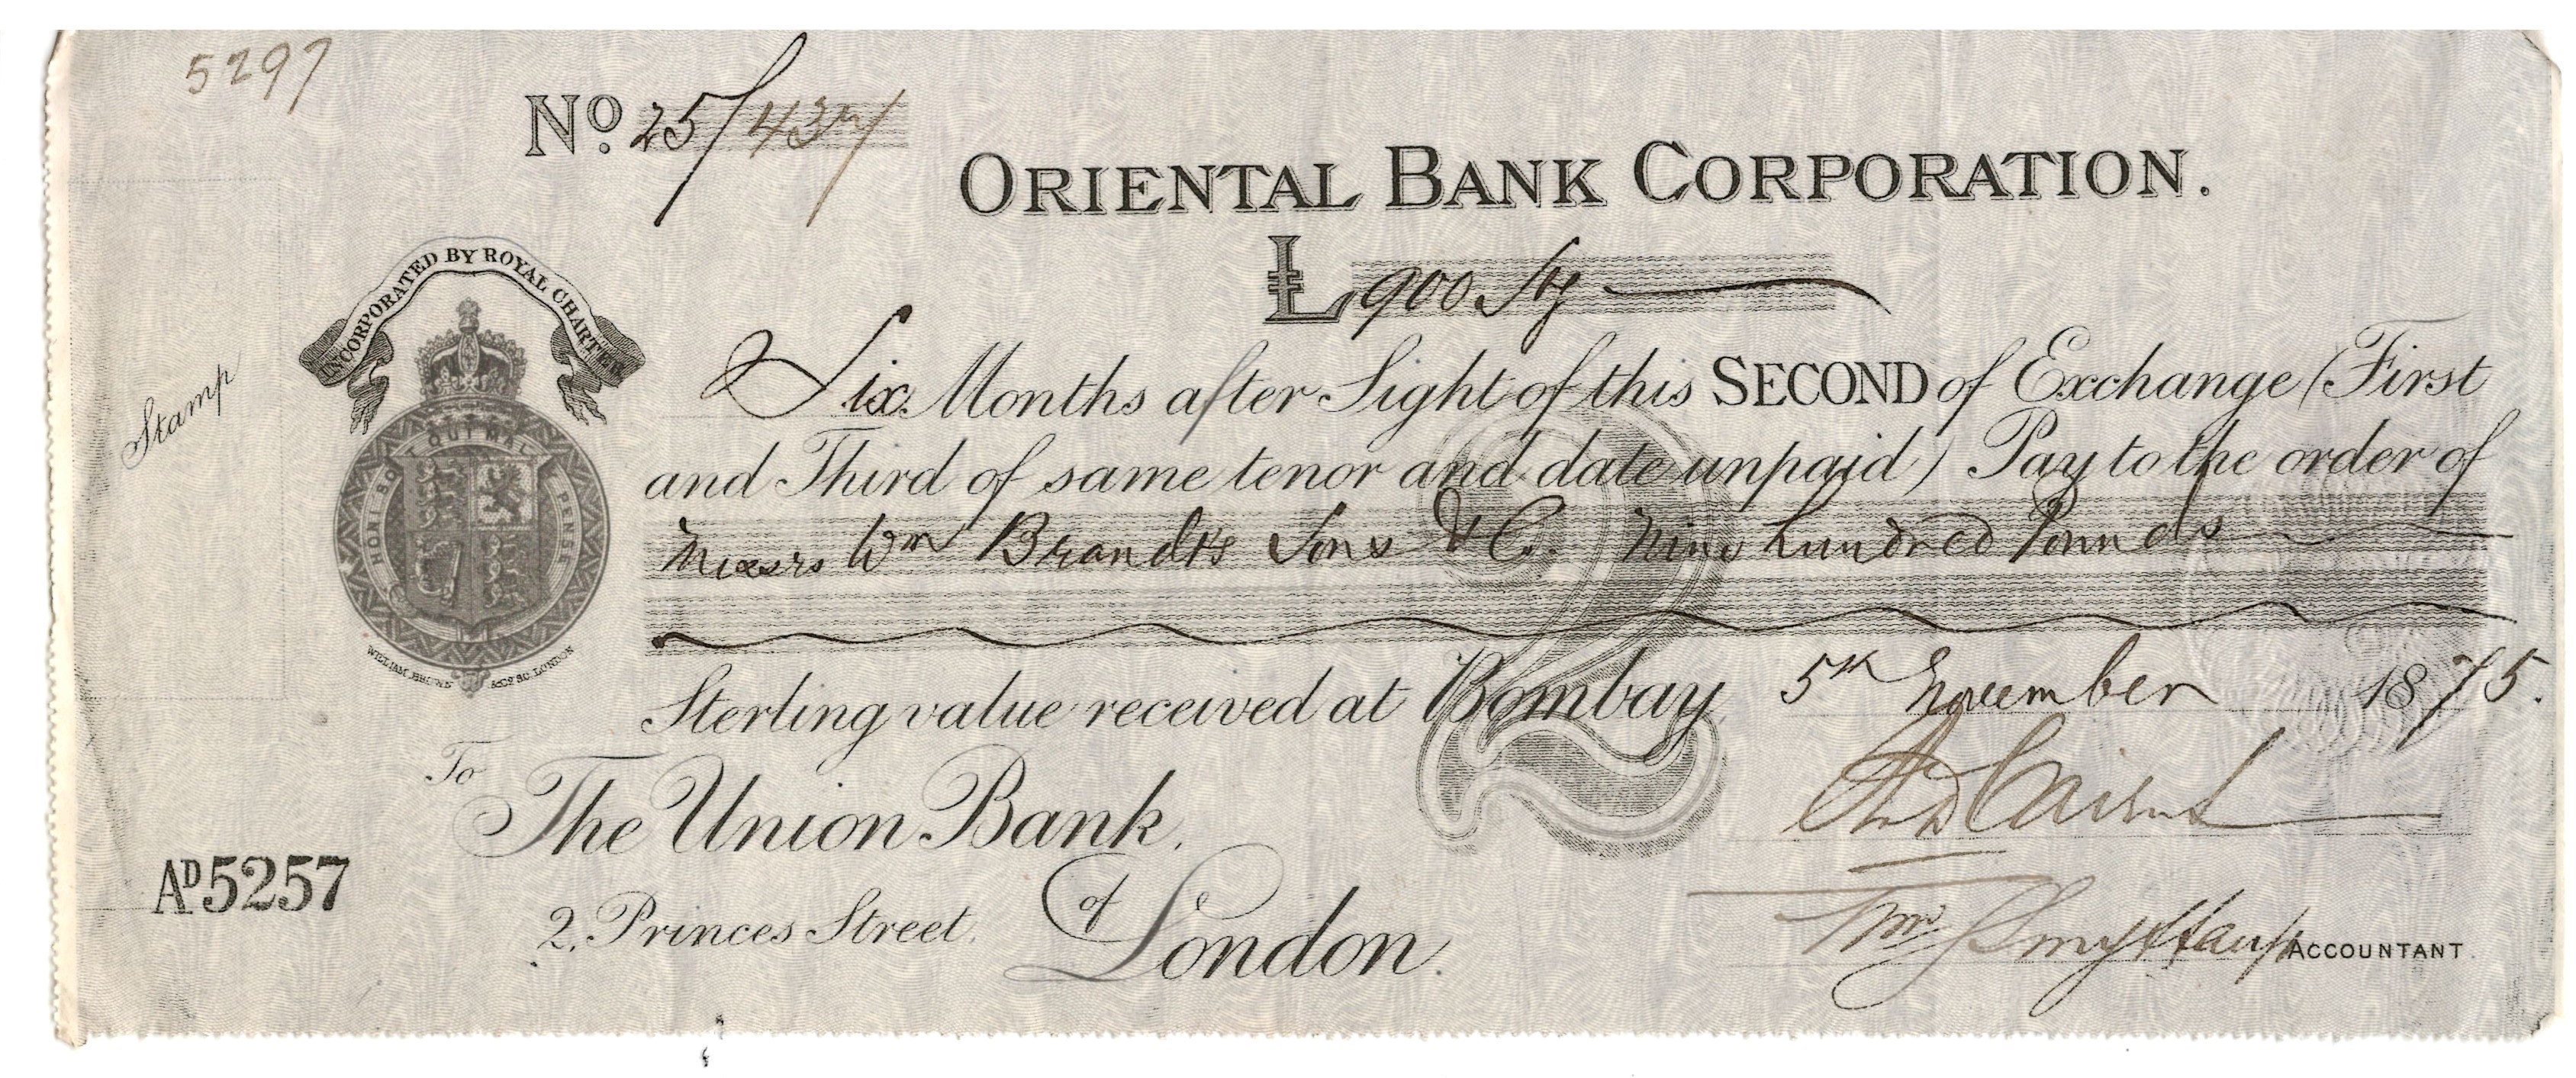 5297
No. 25/437
ORIENTAL BANK CORPORATION.
£900 Stg
INCORPORATED BY ROYAL CHARTER
Stamp
Six Months after Sight of this SECOND of Exchange (First
and Third of same tenor and date unpaid) Pay to the order of
HONI SOIT QUI MAL Y PENSE
Messrs Wm Brandt's Sons & Co. Nine hundred Pounds
WILLIAM BROWN & CO. SC. LONDON
Sterling value received at Bombay 5th November 1875.
To
The Union Bank,
AD 5257
2, Princes Street. of London.
ACCOUNTANT